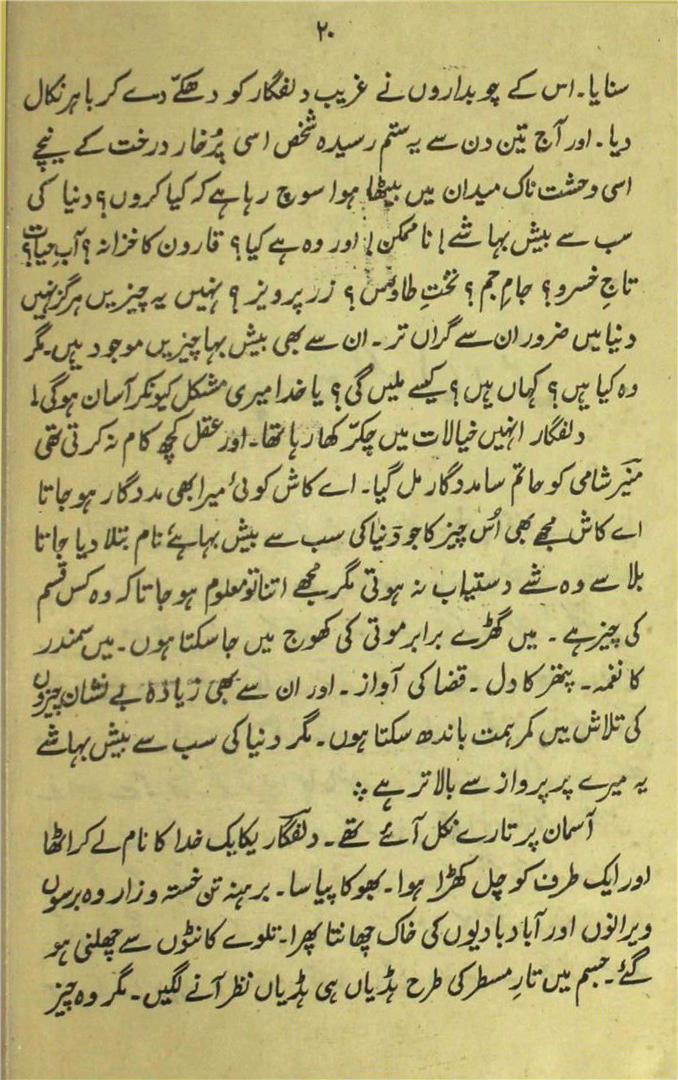 ۲۰
سنایا۔ اس کے چوبداروں نے غریب دلفگار کو دھکّے دے کر باہر نکال
دیا۔ اور آج تین دن سے یہ ستم رسیدہ شخص اسی پُر خار درخت کے نیچے
اسی وحشت ناک میدان میں بیٹھا ہوا سوچ رہا ہے کہ کیا کروں؟ دنیا کی
سب سے بیش بہا شے! ناممکن! اور وہ ہے کیا؟ قارون کا خزانہ؟ آبِ حیات؟
تاجِ خسرو؟ جامِ جم؟ تختِ طاؤس؟ زر پرویز؟ نہیں یہ چیزیں ہرگز نہیں
دنیا میں ضرور ان سے گراں تر۔ ان سے بھی بیش بہا چیزیں موجود ہیں۔ مگر
وہ کیا ہیں؟ کہاں ہیں؟ کیسے ملیں گی؟ یا خدا میری مشکل کیونکر آسان ہوگی!
دلفگار انہیں خیالات میں چکّر کھا رہا تھا۔ اور عقل کچھ کام نہ کرتی تھی
منیر شامی کو حاتم سا مددگار مل گیا۔ اے کاش کوئی میرا بھی مددگار ہو جاتا
اے کاش مجھے بھی اُس چیز کا جو دُنیا کی سب سے بیش بہا ہے نام بتلا دیا جاتا
بلا سے وہ شے دستیاب نہ ہوتی مگر مجھے اتنا تو معلوم ہو جاتا کہ وہ کس قسم
کی چیز ہے۔ میں گھڑے برابر موتی کی کھوج میں جا سکتا ہوں۔ میں سمندر
کا نغمہ۔ پتھر کا دل۔ قضا کی آواز۔ اور ان سے بھی زیادہ بے نشان چیزوں
کی تلاش میں کمر ہمت باندھ سکتا ہوں۔ مگر دنیا کی سب سے بیش بہا شے
یہ میرے پر پرواز سے بالاتر ہے ؞
آسمان پر تارے نکل آئے تھے۔ دلفگار یکایک خدا کا نام لے کر اٹھا
اور ایک طرف کو چل کھڑا ہوا۔ بھوکا پیاسا۔ برہنہ تن خستہ و زار وہ برسوں
ویرانوں اور آبادیوں کی خاک چھانتا پھرا۔ تلوے کانٹوں سے چھلنی ہو
گئے۔ جسم میں تارِ مسطر کی طرح ہڈیاں ہی ہڈیاں نظر آنے لگیں۔ مگر وہ چیز